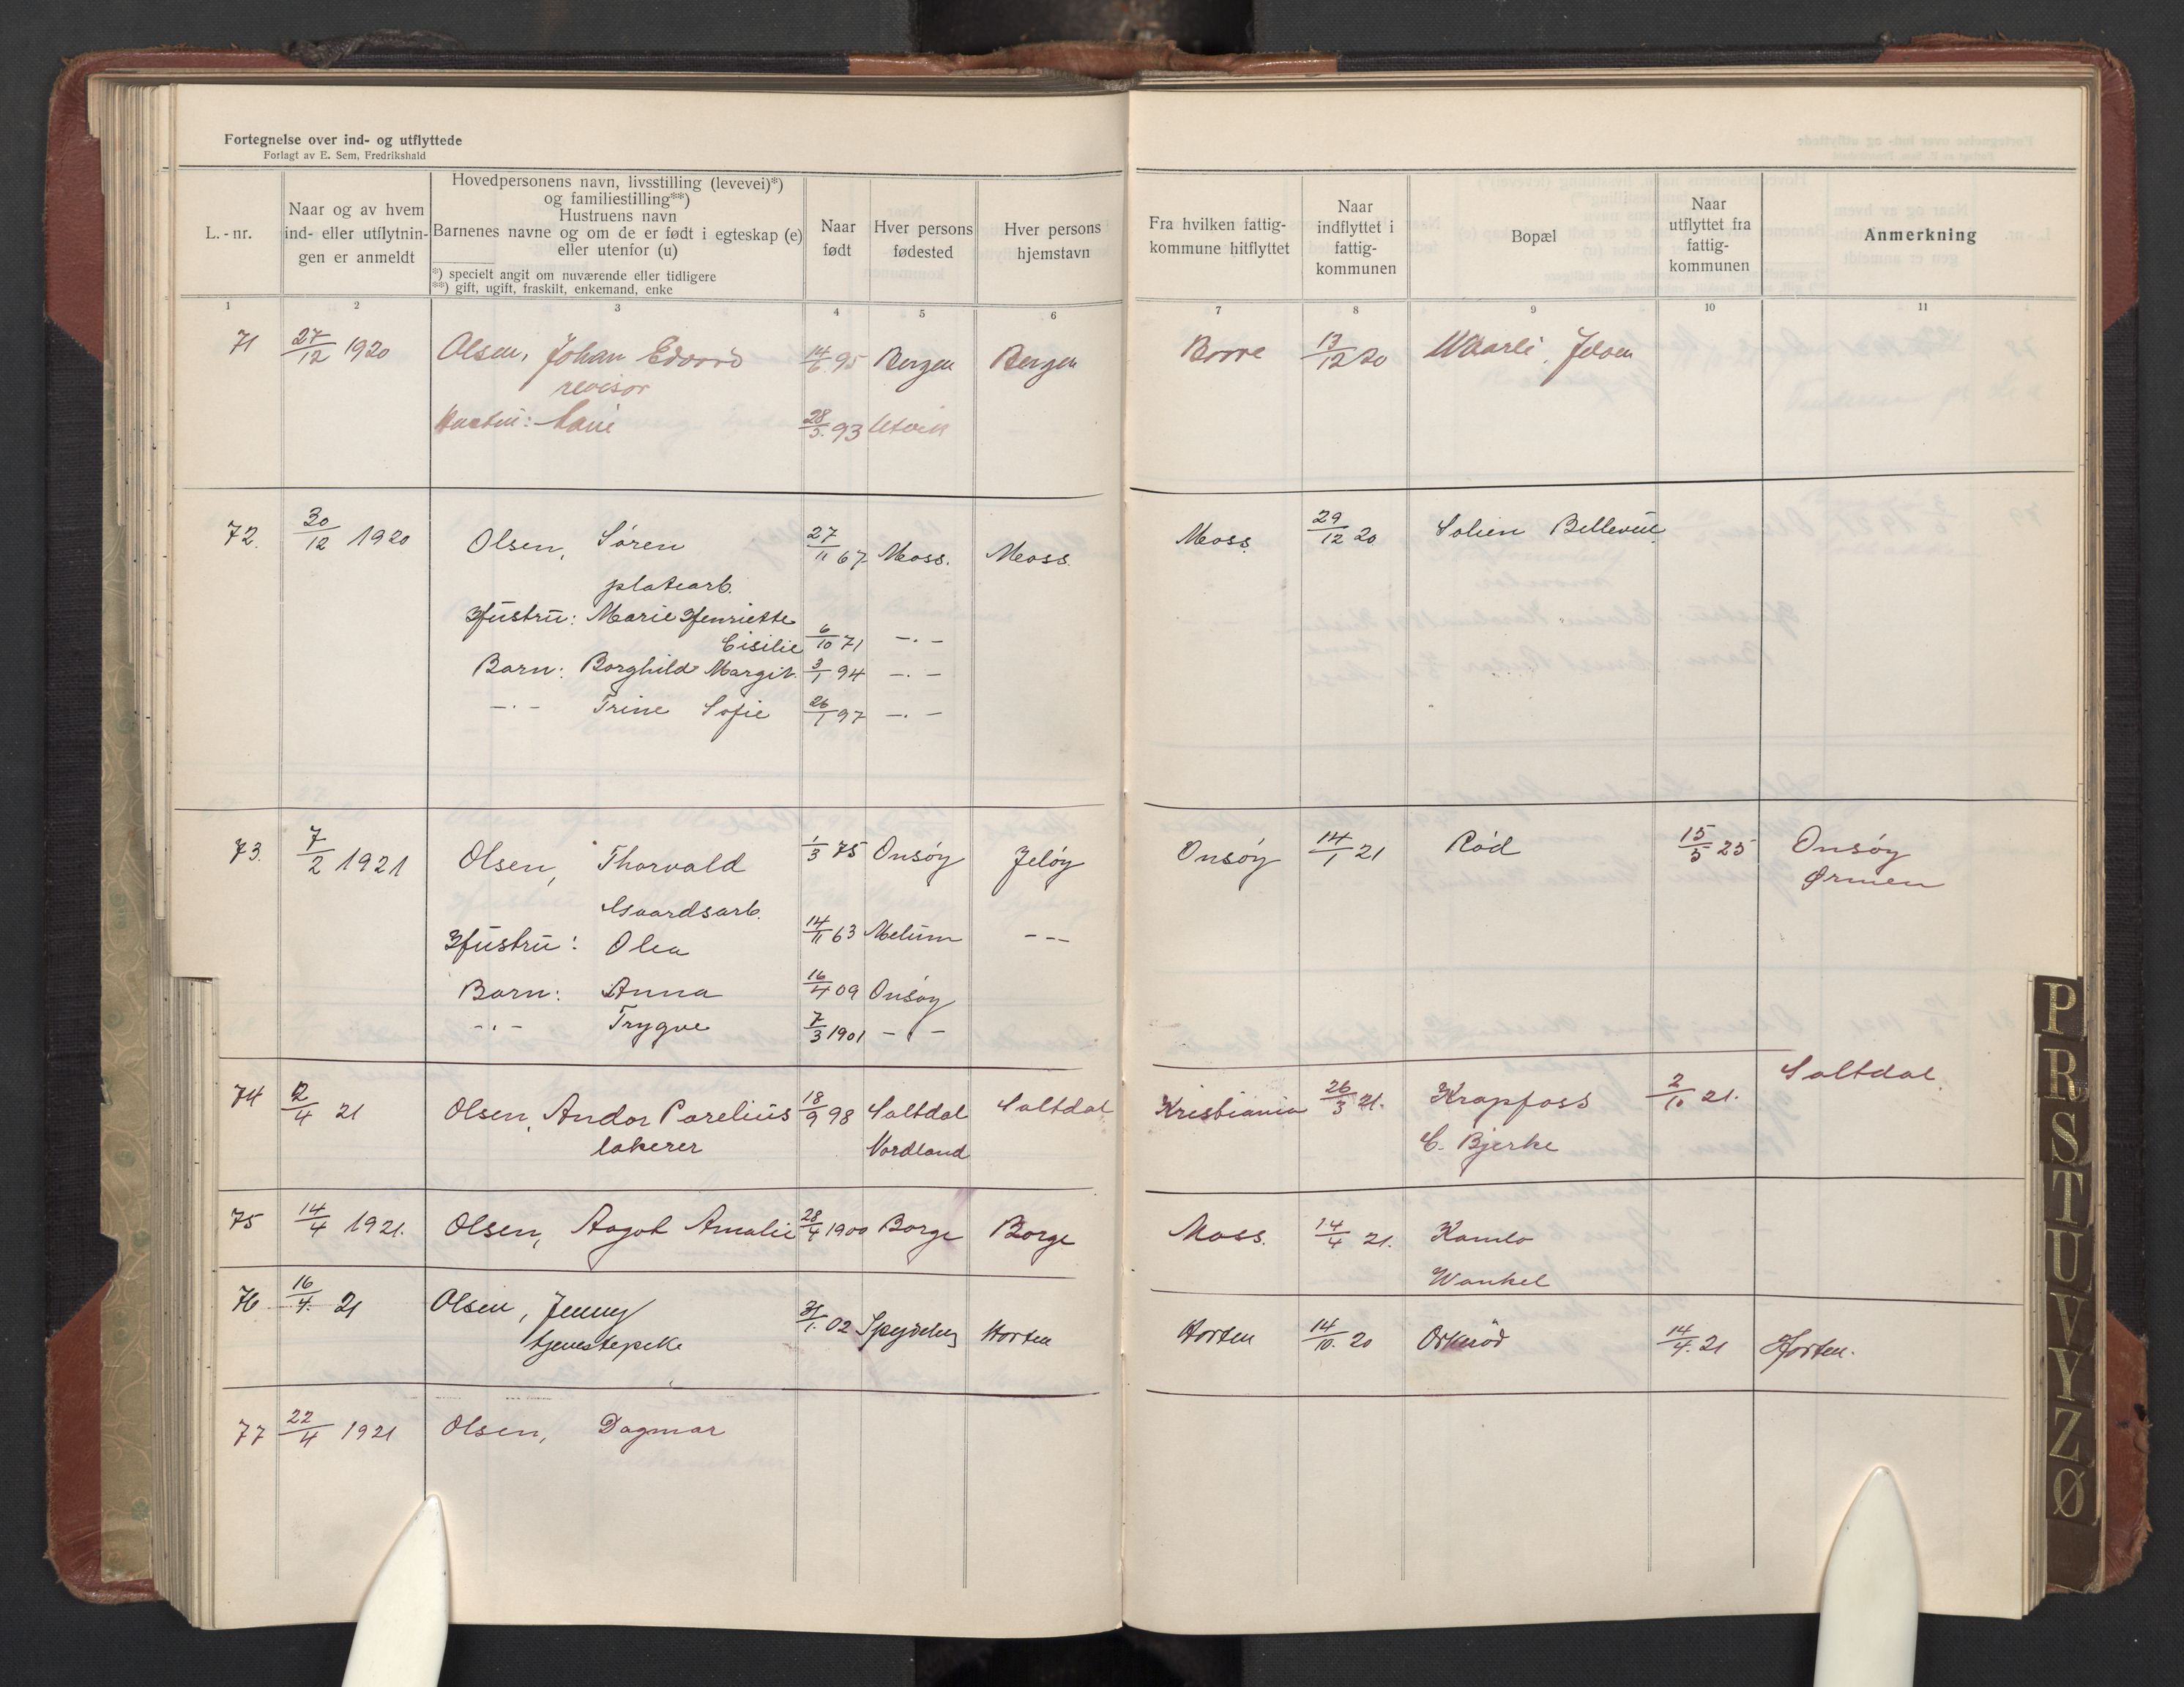 Fortegnelse over ind- og utflyttede
Forlagt av E. Sem, Fredrikshald
L.-nr.
Naar og av hvem ind- eller utflytnin-gen er anmeldt
Hovedpersonens navn, livsstilling (levevei)*)
og familiestilling**)
Hustruens navn
Barnenes navne og om de er født i egteskap (e)
eller utenfor (u)
*) specielt angit om nuværende eller tidligere
**) gift, ugift, fraskilt, enkemand, enke
Naar født
Hver persons fødested
Hver persons hjemstavn
Fra hvilken fattig-kommune hitflyttet
Naar indflyttet i fattig-kommunen
Bopæl
Naar utflyttet fra fattig-kommunen
Anmerkning
1 2 3 4 5 6 7 8 9 10 11
71 27/12 1920 Olsen, Johan Edvard 14/6 95 Bergen Bergen Borre 13/12 20 Jeløen
revisor
Hustru: 28/5 93 Utvik
72. 30/12 1920 Olsen, Søren 27/11 67 Moss. Moss. Moss. 29/12 20 Solien Bellevue
platearb.
Hustru: Marie Henriette
Cisilie 6/10 71 -.-
Barn: Borghild Margit. 3/1 94 -.-
-.- Trine Sofie 26/1 97 -.-
73. 7/2 1921 Olsen, Thorvald 1/3 75 Onsøy Jeløy Onsøy 14/1 21 Rød 15/5 25 Onsøy
Ørmen
Gaardsarb.
Hustru: Olea 14/11 63 Melum - - -
Barn: Anna 16/4 09 Onsøy
-.- Trygve 7/3 1901 -.-
74 2/4 21 Olsen, Andor Parelius 18/9 98 Saltdal Saltdal Kristiania 26/3 21. Krapfoss 2/10 21. Saltdal.
lakerer Nordland C. Bjerke
75 14/4 1921. Olsen, Aagot Amalie 28/4 1900 Borge Borge Moss. 14/4 21. Kamlo
Wankel
76 16/4. 21 Olsen, Jenny 31/1. 02 Spydeberg Horten Horten 14/10. 20 Orkerød 14/4. 21 Horten.
tjenestepike
77 22/4 1921 Olsen, Dagmar
P
R
S
T
U
V
Y
Z
Ø